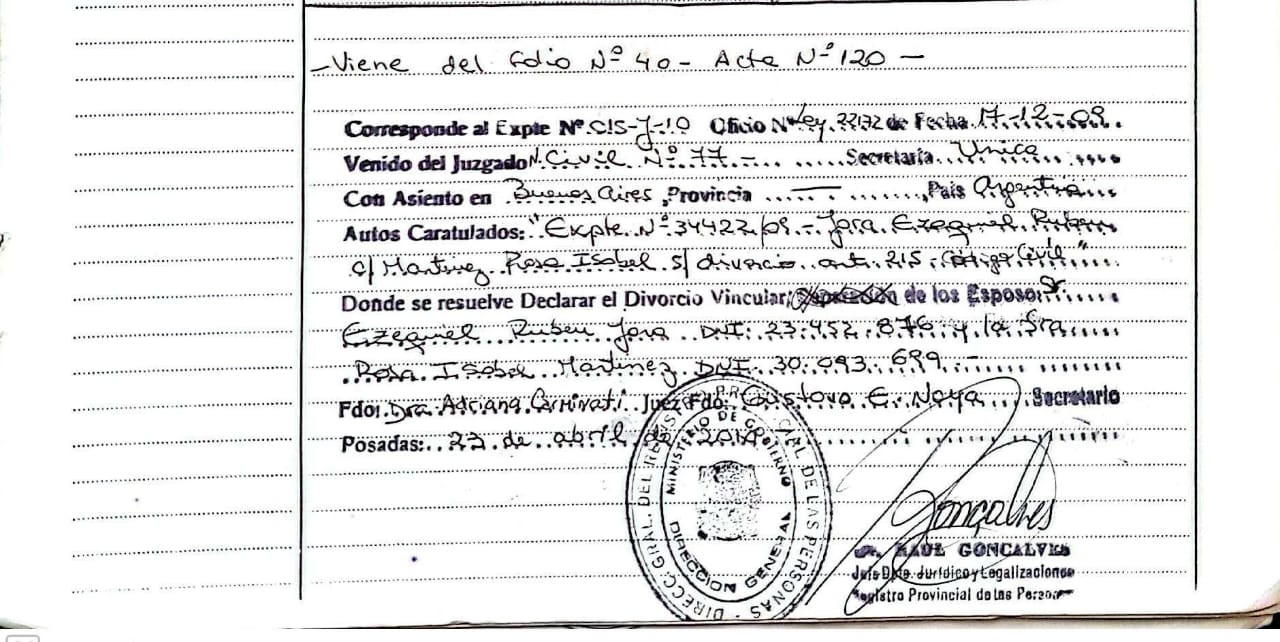 -Viene del Folio Nº 40 - Acta Nº 120 -
Corresponde al Expte Nº C15-J-10 Oficio Nº Ley 22172 de Fecha 17-12-09
Venido del Juzgado N. Civil Nº 77 - Secretaría Unica
Con Asiento en Buenos Aires, Provincia — , País Argentina
Autos Caratulados: "Expte. Nº 34422/09 - Jara Ezequiel Ruben
c/ Martinez Rosa Isabel s/ divorcio art. 215 Código Civil"
Donde se resuelve Declarar el Divorcio Vincular; de los Esposos
Ezequiel Ruben Jara DNI: 23.452.876 y la Sra
Rosa Isabel Martinez DNI 30.093.699 -
Fdo: Dra. Adriana Juez Fdo: Gustavo E. Noya Secretario
Posadas: de abril de
DIRECC. GRAL. DEL DE LAS PERSONAS
MINISTERIO DE GOBIERNO
DIRECCION GENERAL
Goncalves
RAUL GONCALVES
Jefe Dpto. Jurídico y Legalizaciones
Registro Provincial de las Personas